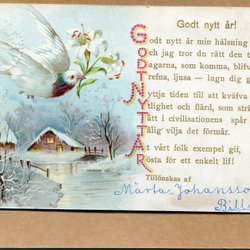 Godt nytt år!
GODT NYTT ÅR
Godt nytt år min hälsning
och jag tror du rätt den t
Dagarna, som komma, blifv
refna, ljusa — lugn dig g
Nyttja tiden till att kväfva
tlighet och flärd, som strid
tåt i civilisationens spår
Tålig vilja det förmår.
vårt folk exempel gif,
bästa för ett enkelt lif!
Tillönskas af
Märta Johansso
Bill